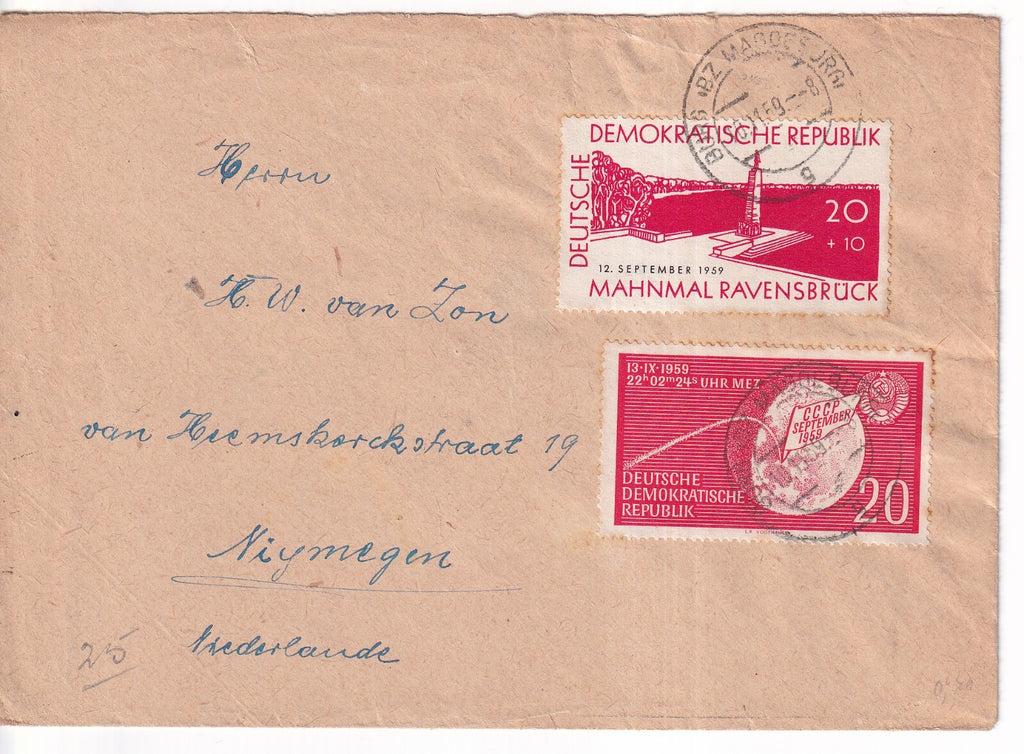 BURG (BZ MAGDEBURG)
DEUTSCHE
DEMOKRATISCHE REPUBLIK
20
+ 10
12. SEPTEMBER 1959
MAHNMAL RAVENSBRÜCK
Herrn
H. W. van Zon
van Heemskerckstraat 19
Niymegen
Niederlande
13·IX·1959
22h 02m 24s UHR MEZ
CCCP
SEPTEMBER
1959
DEUTSCHE
DEMOKRATISCHE
REPUBLIK
20
25